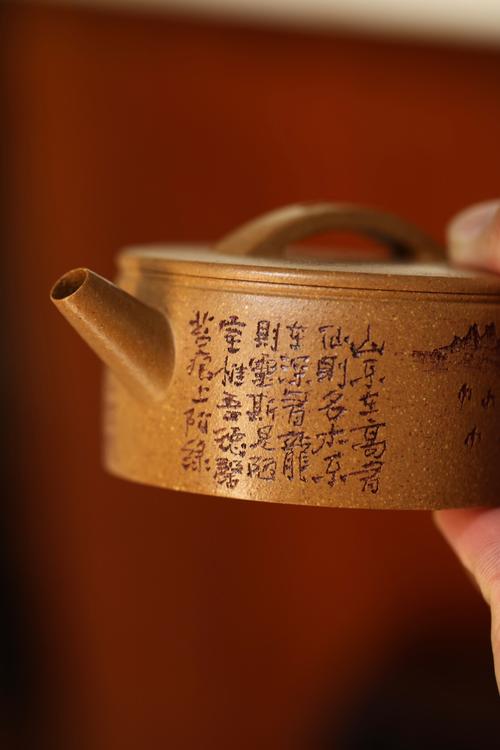 山不在高有
仙則名水不
在深有龍
則靈斯是陋
室惟吾德馨
苔痕上階綠